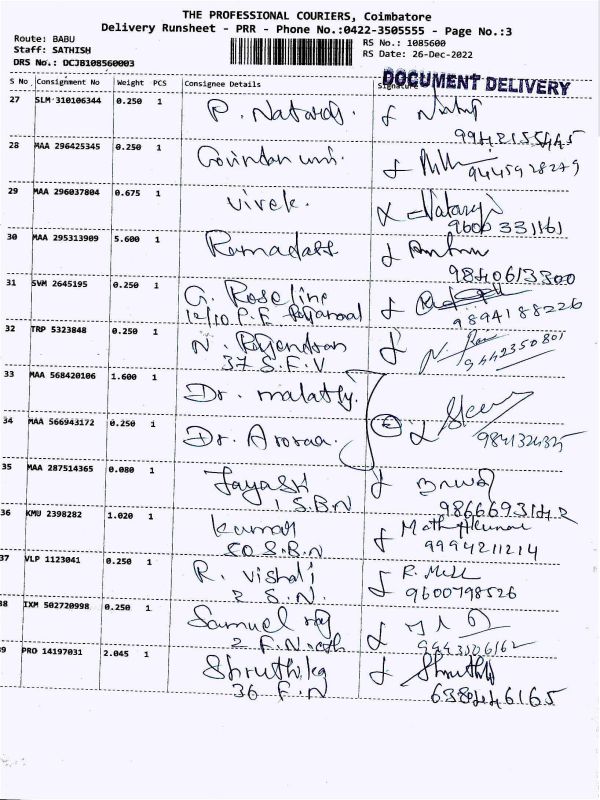 THE PROFESSIONAL COURIERS, Coimbatore
Delivery Runsheet - PRR - Phone No.:0422-3505555 - Page No.:3
Route: BABU
Staff: SATHISH
DRS No.: DCJB108560003
RS No.: 1085600
RS Date: 26-Dec-2022
DOCUMENT DELIVERY
S No Consignment No Weight PCS Consignee Details Signature
27 SLM 310106344 0.250 1 P.
28 MAA 296425345 0.250 1
9445928279
29 MAA 296037804 0.675 1 Vivek. Nataraj
9600331161
30 MAA 295313909 5.600 1 Ramadass
9840613300
31 SVM 2645195 0.250 1 G. Roseline
12/10 P.F
9894188226
32 TRP 5323848 0.250 1 N. Rajendran
37 S.F.V 9442350801
33 MAA 568420106 1.600 1 Dr. malathy.
34 MAA 566943172 0.250 1 Dr.
35 MAA 287514365 0.080 1 Jayash
1 S.B.N
36 KMU 2398282 1.020 1 Kumar
50 S.B.N 9994211214
37 VLP 1123041 0.250 1 R. Vishali R.
2 S.N. 9600798526
38 IXM 502720998 0.250 1 Samuel raj
2 F.N 9443506162
39 PRO 14197031 2.045 1 Shruthika
36 F.N